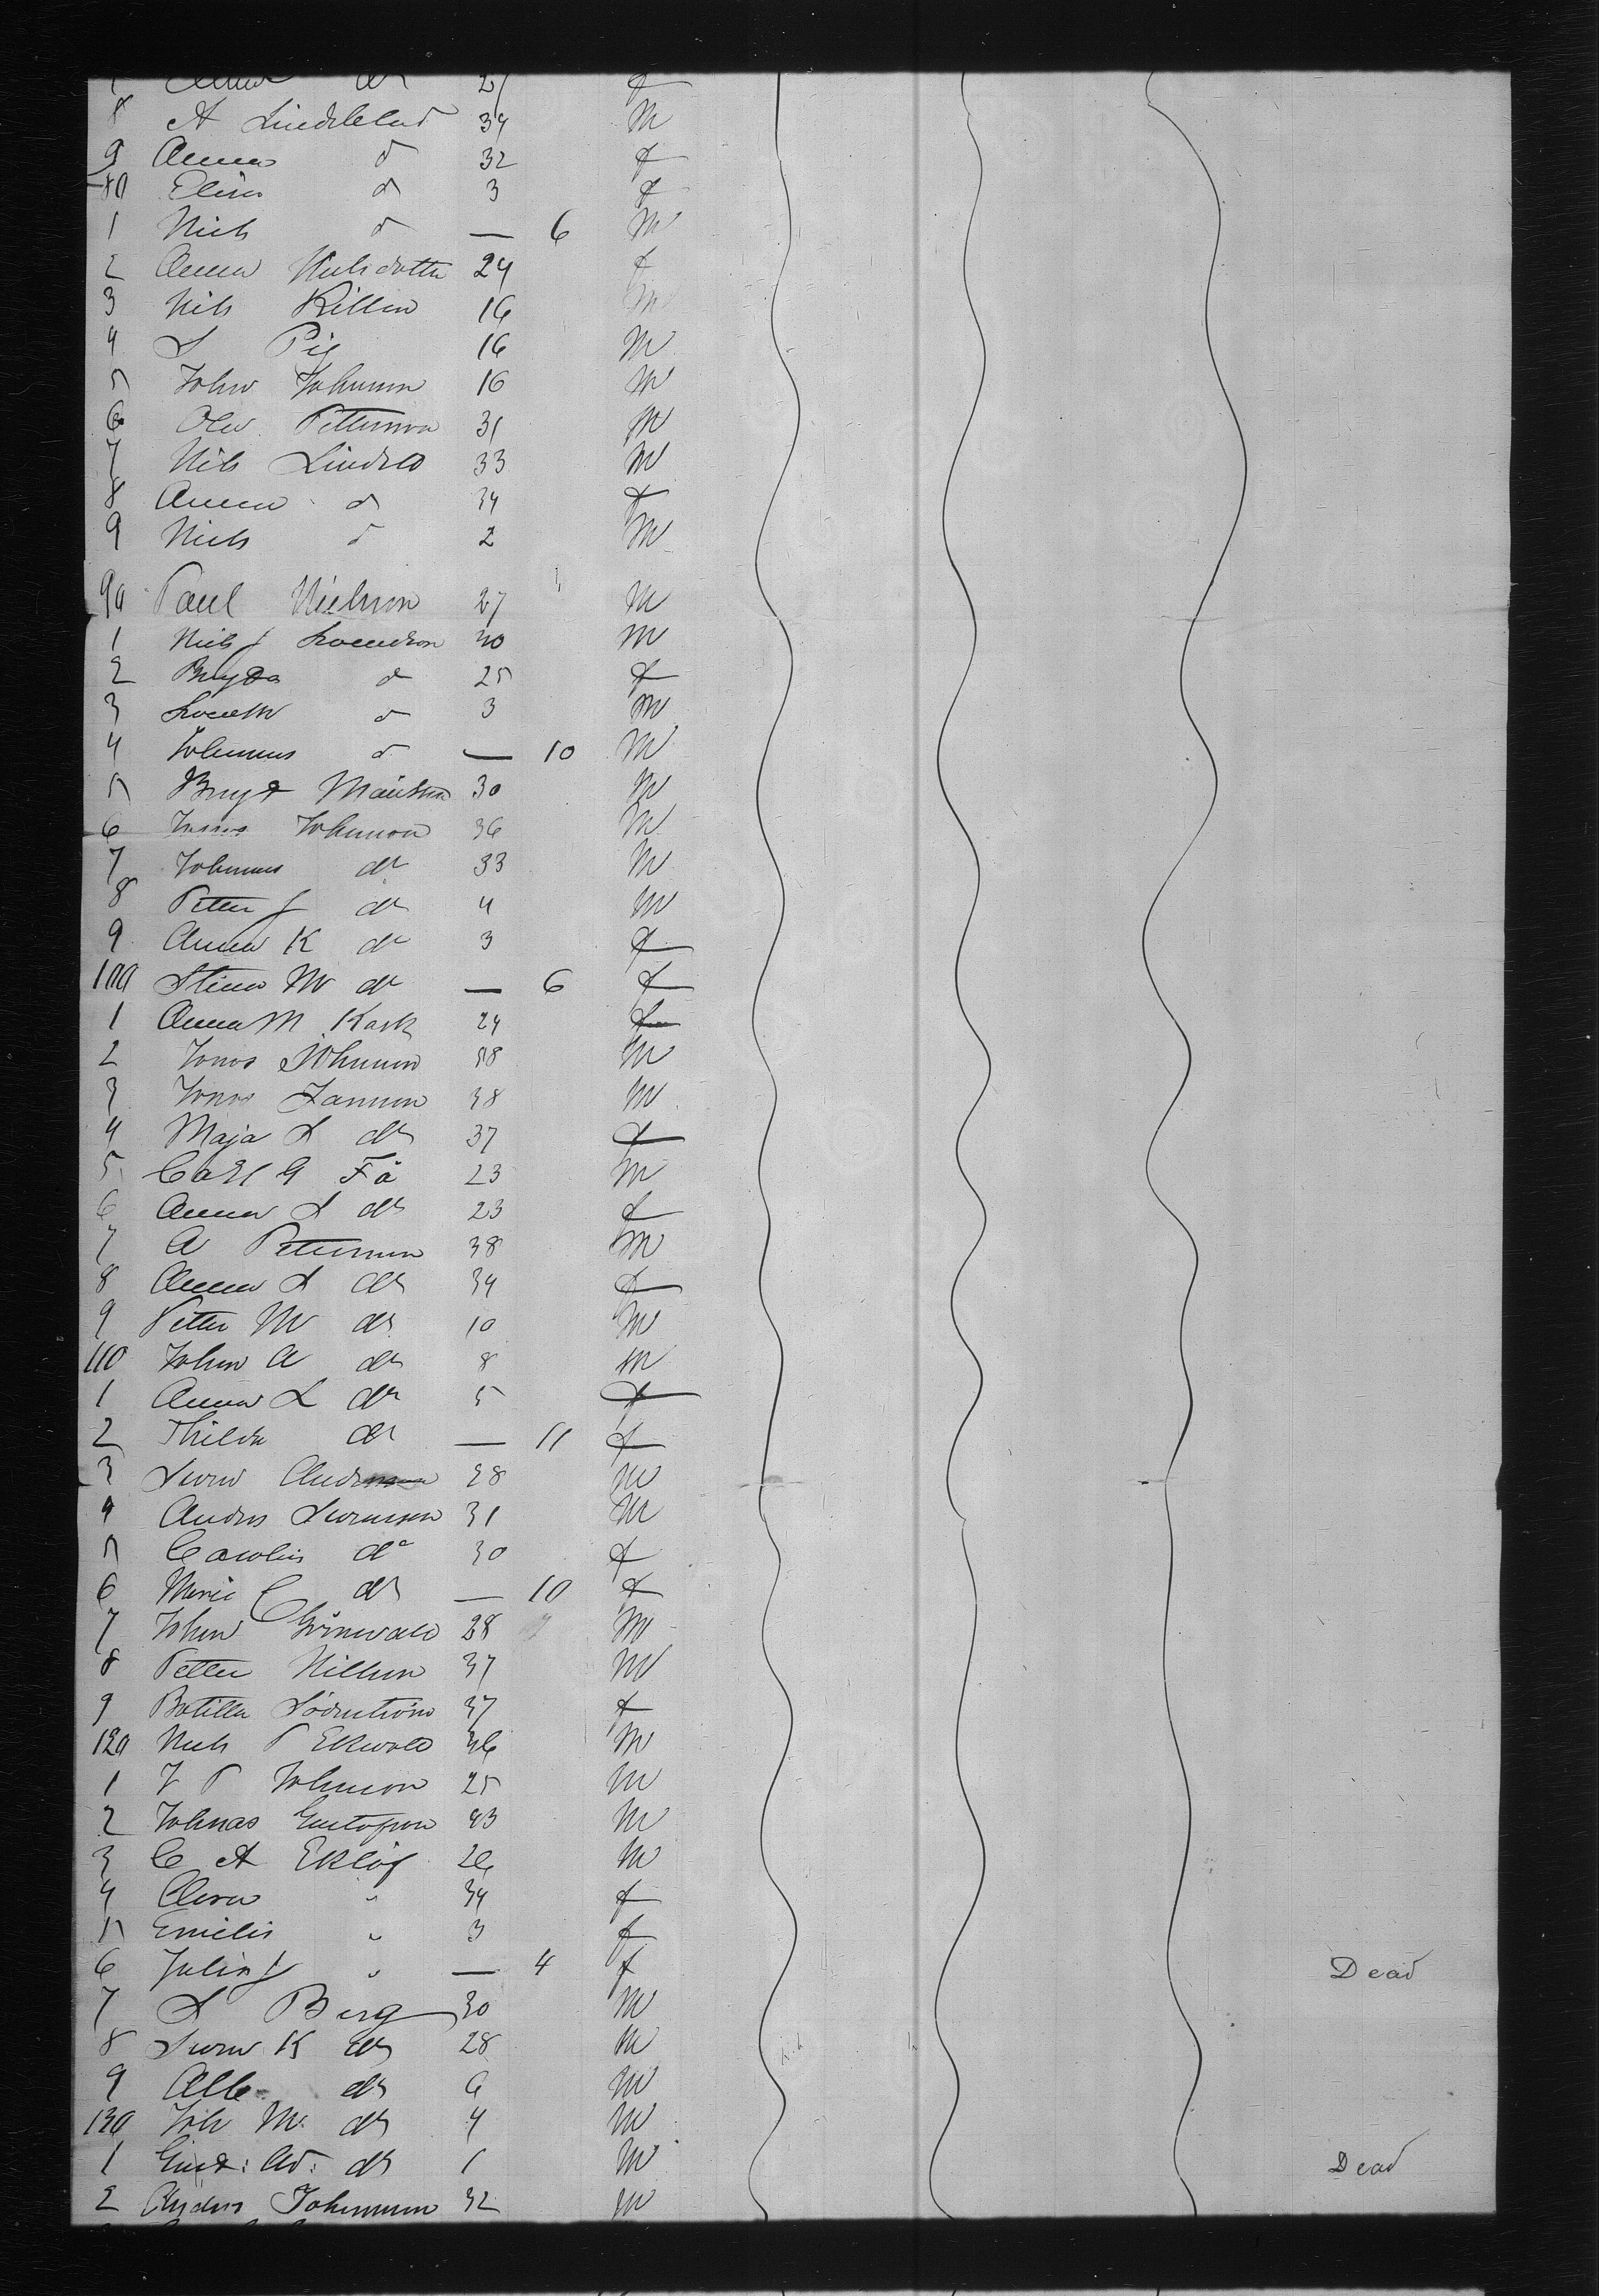 Anna do 27 f
8 A Lindblad 34 M
9 Anna d 32 f
80 Elina d 3 f
1 Niels d — 6 M
2 Anna Nilsdotter 24 f
3 Nils Killin 16 M
4 S Pig 16 M
5 John Johnson 16 M
6 Ole Petterson 31 M
7 Nils Lindblo 33 M
8 Anna d 34 f
9 Niels d 2 M
90 Paul Nielson 27 M
1 Niels J Svendson 30 M
2 Bengta d 25 f
3 d 3 M
4 Johannes d — 10 M
5 Bengt 30 M
6 Jonas Johnson 36 M
7 Johannes do 33 M
8 Petter J do 4 M
9 Anna K do 3 f
100 Stina M do — 6 f
1 Anna M Kask 24 f
2 Jonas Johnson 18 M
3 Jonas 38 M
4 Maja S do 37 f
5 Carl G Få 23 M
6 Anna S do 23 f
7 A Petterson 38 M
8 Anna S do 34 f
9 Petter M do 10 M
110 John A do 8 M
1 Anna L do 5 f
2 Thilda do — 11 f
3 Sven Anderson 28 M
4 Andrs Svenson 31 M
5 Carolin do 30 f
6 Marie C do — 10 f
7 John Grönwald 28 M
8 Petter Nillson 37 M
9 Botilla Söderström 37 f
120 Niels P Ekwald 36 M
1 J P Johnson 25 M
2 Johnas Gustafson 23 M
3 C A Eklöf 26 M
4 Clara " 34 f
5 Emilie " 3 f
6 Julia J " — 4 f Dead
7 S Berg 30 M
8 Sven K do 28 M
9 Alb. do 6 M
130 Joh M. do 4 M
1 Gust: Ad: do 1 M Dead
2 Anders Johnson 32 M